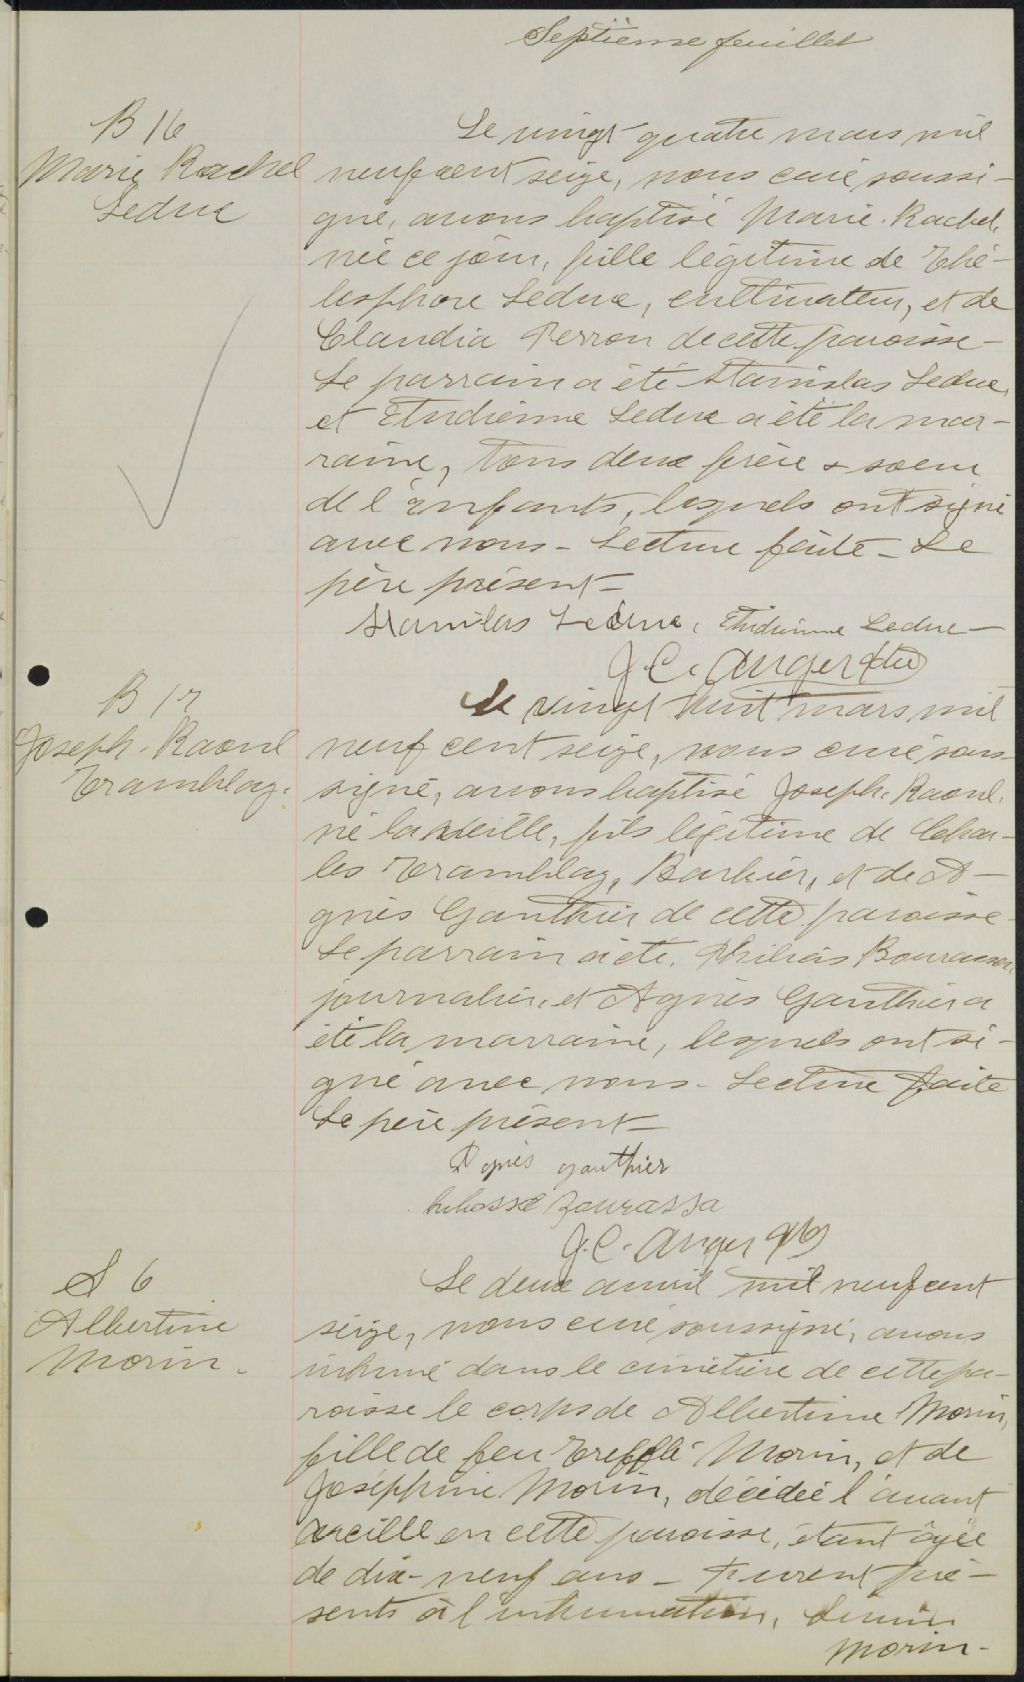 Septième feuillet
B 16
Marie Rachel
Leduc
Le vingt quatre mars mil
neuf cent seize, nous curé soussi-
gné, avons baptisé Marie. Rachel,
née ce jour, fille légitime de Thé-
lesphore Leduc, cultivateur, et de
Claudia Perron de cette paroisse-
Le parrain a été Stanislas Leduc,
et Etudienne Leduc a été la mar-
raine, tous deux frère & soeur
de l'enfants, lesquels ont signé
avec nous - Lecture faite - Le
père présent -
Stanilas Leduc, Etudienne Leduc -
J. C. Anger Ptre
B 17
Joseph. Raoul
Tramblay.
Le vingt huit mars mil
neuf cent seize, nous curé sous-
signé, avons baptisé Joseph. Raoul.
né la veille, fils légitime de Char-
les Tramblay, Barbier, et de A-
gnès Gauthier de cette paroisse-
Le parrain a été. Philias Bourassa
journalier, et Agnès Gauthier a
été la marraine, lesquels ont si-
gné avec nous - Lecture faite
Le père présent -
Agnès gauthier
J. C. Anger
S 6
Albertine
Morin.
Le deux avril mil neuf cent
seize, nous curé soussigné, avons
inhumé dans le cimetière de cette pa-
roisse le corps de Albertine Morin,
fille de feu Trefflé Morin, et de
Joséphine Morin, décédée l'avant
veille en cette paroisse, étant âgée
de dix-neuf ans - Furent pré-
sents à l'inhumation,
Morin -